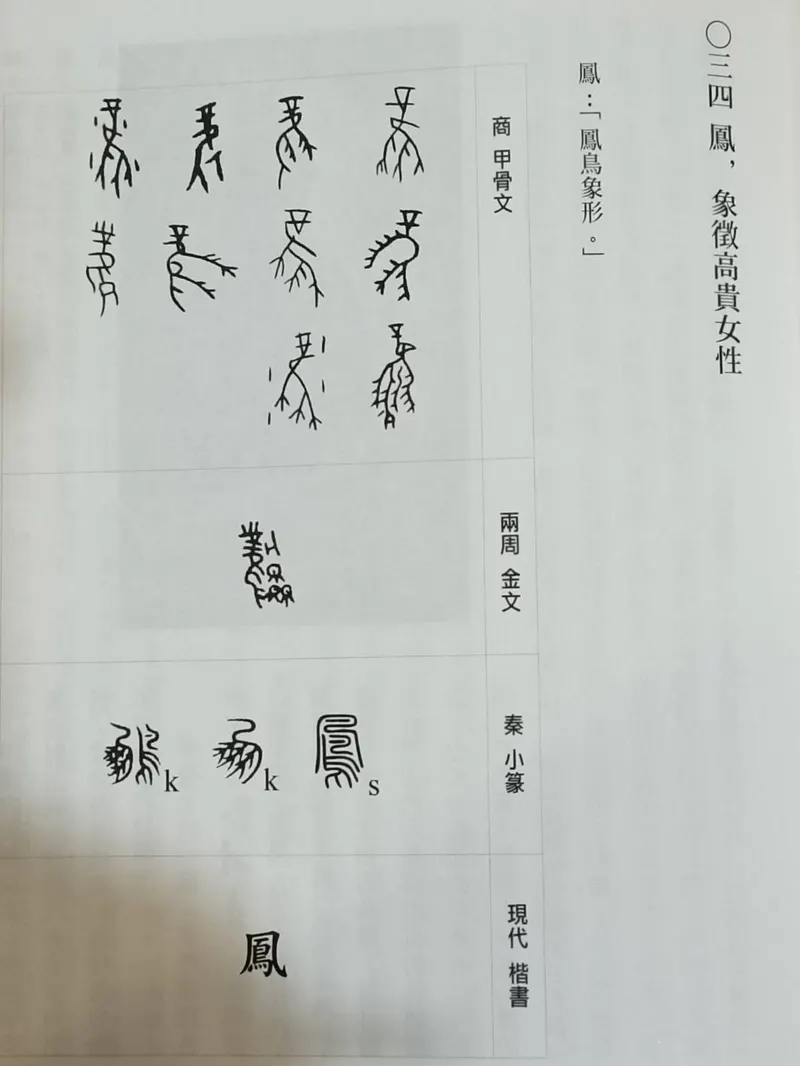 〇三四 鳳，象徵高貴女性
鳳：「鳳鳥象形。」
商 甲骨文
兩周 金文
秦 小篆
s
k
k
現代 楷書
鳳